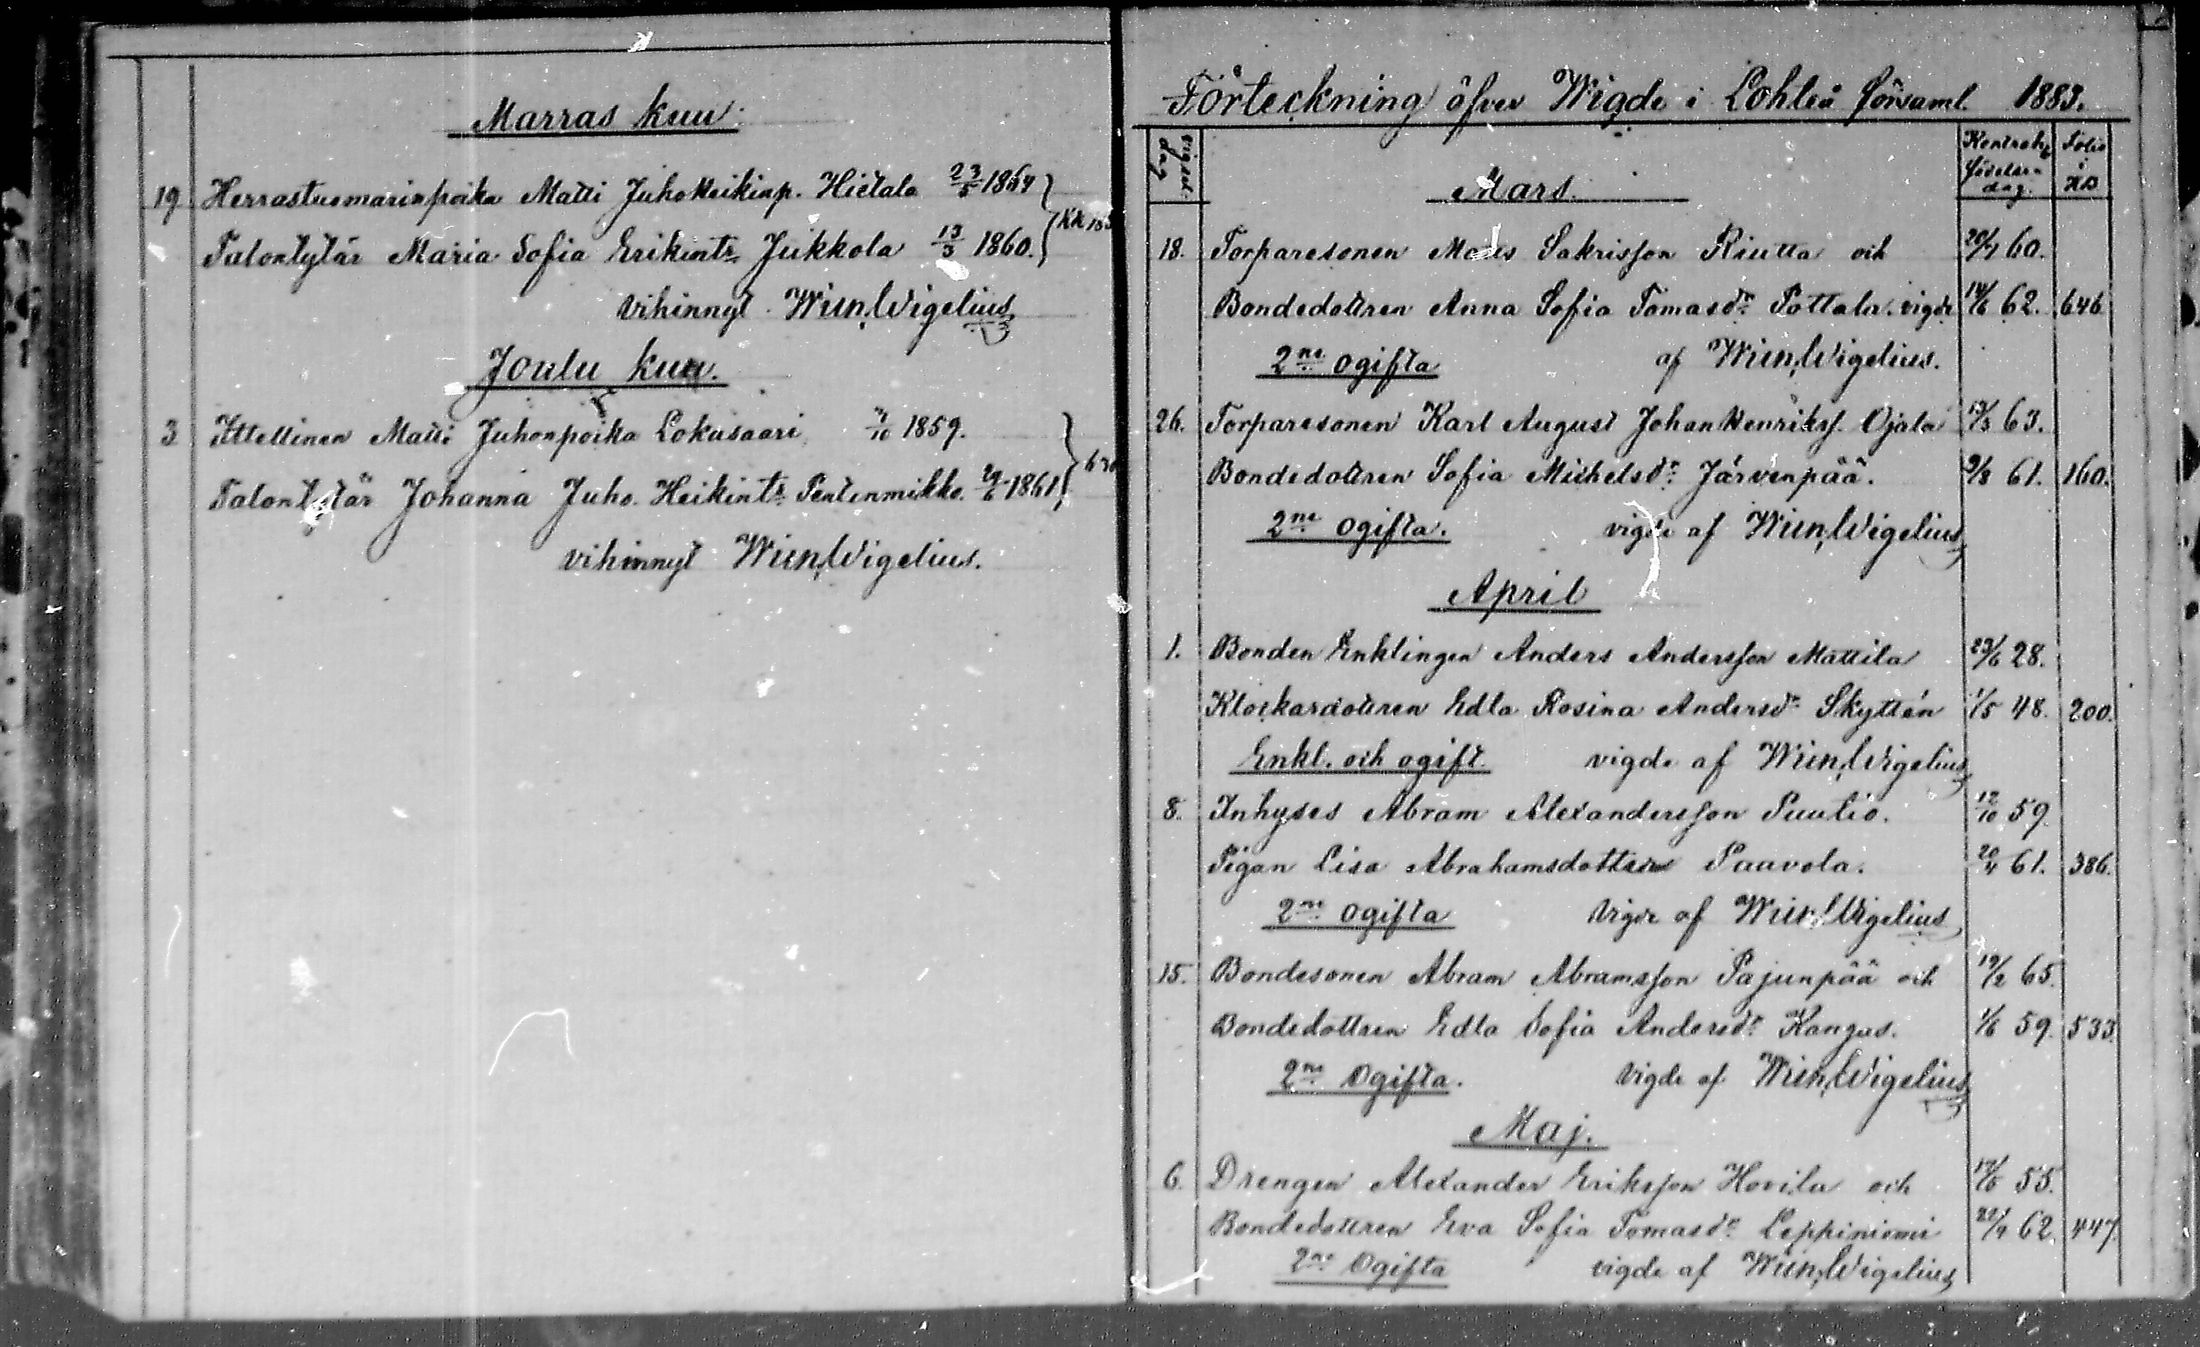 Marras kuu
19 Herrastuomarinpoika Matti Juho Heikinp. Hietala 23/5 1864
Talontytär Maria Sofia Erikint. Jukkola 13/3 1860.
vihinnyt Wigelius
Joulu kuu.
3 Ittellinen Matti Juhonpoika Lokasaari 7/10 1859.
Talontytär Johanna Juho Heikint. Pentenmikko 29/6 1861
vihinnyt Wigelius.
Förteckning öfver Wigde i Lohteå församl. 1883.
Vigsel dag
Kontrah. födelse-dag.
Folio i KB
Mars.
18. Torparesonen Matts Sakrisson Riutta och 20/7 60.
Bondedottren Anna Sofia Tomasdr Pottala vigde 14/6 62. 646
2ne ogifta af Wigelius.
26. Torparesonen Karl August Johan Henrikss. Ojala 13/3 63.
Bondedottren Sofia Michelsdr Järvenpää. 9/8 61. 160.
2ne ogifta. vigde af Wigelius
April
1. Bonden Enklingen Anders Andersson Mattila 23/6 28.
Klockardottren Edla Rosina Andersdr Skyttén 1/5 48. 200.
Enkl. och ogift. vigde af Wigelius
8. Inhyses Abram Alexandersson Puulio. 12/10 59
Pigan Lisa Abrahamsdotter Paavola. 20/4 61. 386.
2ne ogifta Vigde af Wigelius
15. Bondesonen Abram Abramsson Pajunpää och 19/2 65.
Bondedottren Edla Sofia Andersdr Kangas. 1/6 59. 533.
2ne Ogifta. Vigde af Wigelius
Maj.
6. Drengen Alexander Eriksson Hovila och 17/5 55.
Bondedottren Eva Sofia Tomasdr Leppiniemi 22/9 62 447.
2ne Ogifta vigde af Wigelius